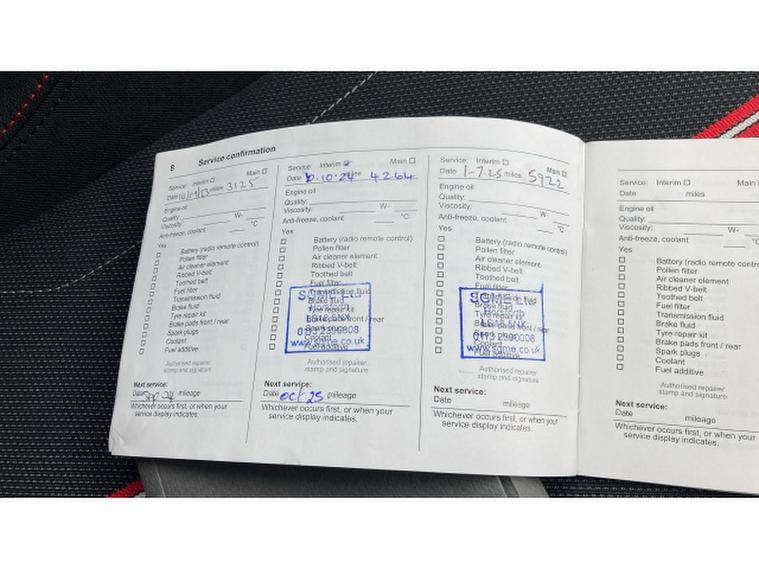 8 Service confirmation
Service: Interim Main
Date 14/09/23 miles 3125
Engine oil
Quality: W-
Viscosity: °C
Anti-freeze, coolant
Yes
Battery (radio remote control)
Pollen filter
Air cleaner element
Ribbed V-belt
Toothed belt
Fuel filter
Transmission fluid
Brake fluid
Tyre repair kit
Brake pads front / rear
Spark plugs
Coolant
Fuel additive
Authorised repairer
stamp and signature
Next service:
Date Sep 24 mileage
Whichever occurs first, or when your
service display indicates.
Service: Interim Main
Date 10.10.24 miles 4264
Engine oil
Quality: W-
Viscosity: °C
Anti-freeze, coolant
Yes
Battery (radio remote control)
Pollen filter
Air cleaner element
Ribbed V-belt
Toothed belt
Fuel filter
Transmission fluid
Brake fluid
Tyre repair kit
Brake pads front / rear
Spark plugs
Coolant
Fuel additive
Horsforth
LS18 5NX
0113 2590808
www.sgme.co.uk
Authorised repairer
stamp and signature
Next service:
Date oct 25 mileage
Whichever occurs first, or when your
service display indicates.
Service: Interim Main
Date 1-7-25 miles 5922
Engine oil
Quality: W-
Viscosity: °C
Anti-freeze, coolant
Yes
Battery (radio remote control)
Pollen filter
Air cleaner element
Ribbed V-belt
Toothed belt
Fuel filter
Transmission fluid
Brake fluid
Tyre repair kit
Brake pads front / rear
Spark plugs
Coolant
Fuel additive
Horsforth
LS18 5NX
www.sgme.co.uk
Authorised repairer
stamp and signature
Next service:
Date mileage
Whichever occurs first, or when your
service display indicates.
Service: Interim Main
Date miles
Engine oil
Quality: W-
Viscosity: °C
Anti-freeze, coolant
Yes
Battery (radio remote control)
Pollen filter
Air cleaner element
Ribbed V-belt
Toothed belt
Fuel filter
Transmission fluid
Brake fluid
Tyre repair kit
Brake pads front / rear
Spark plugs
Coolant
Fuel additive
Authorised repairer
stamp and signature
Next service:
Date mileage
Whichever occurs first, or when your
service display indicates.